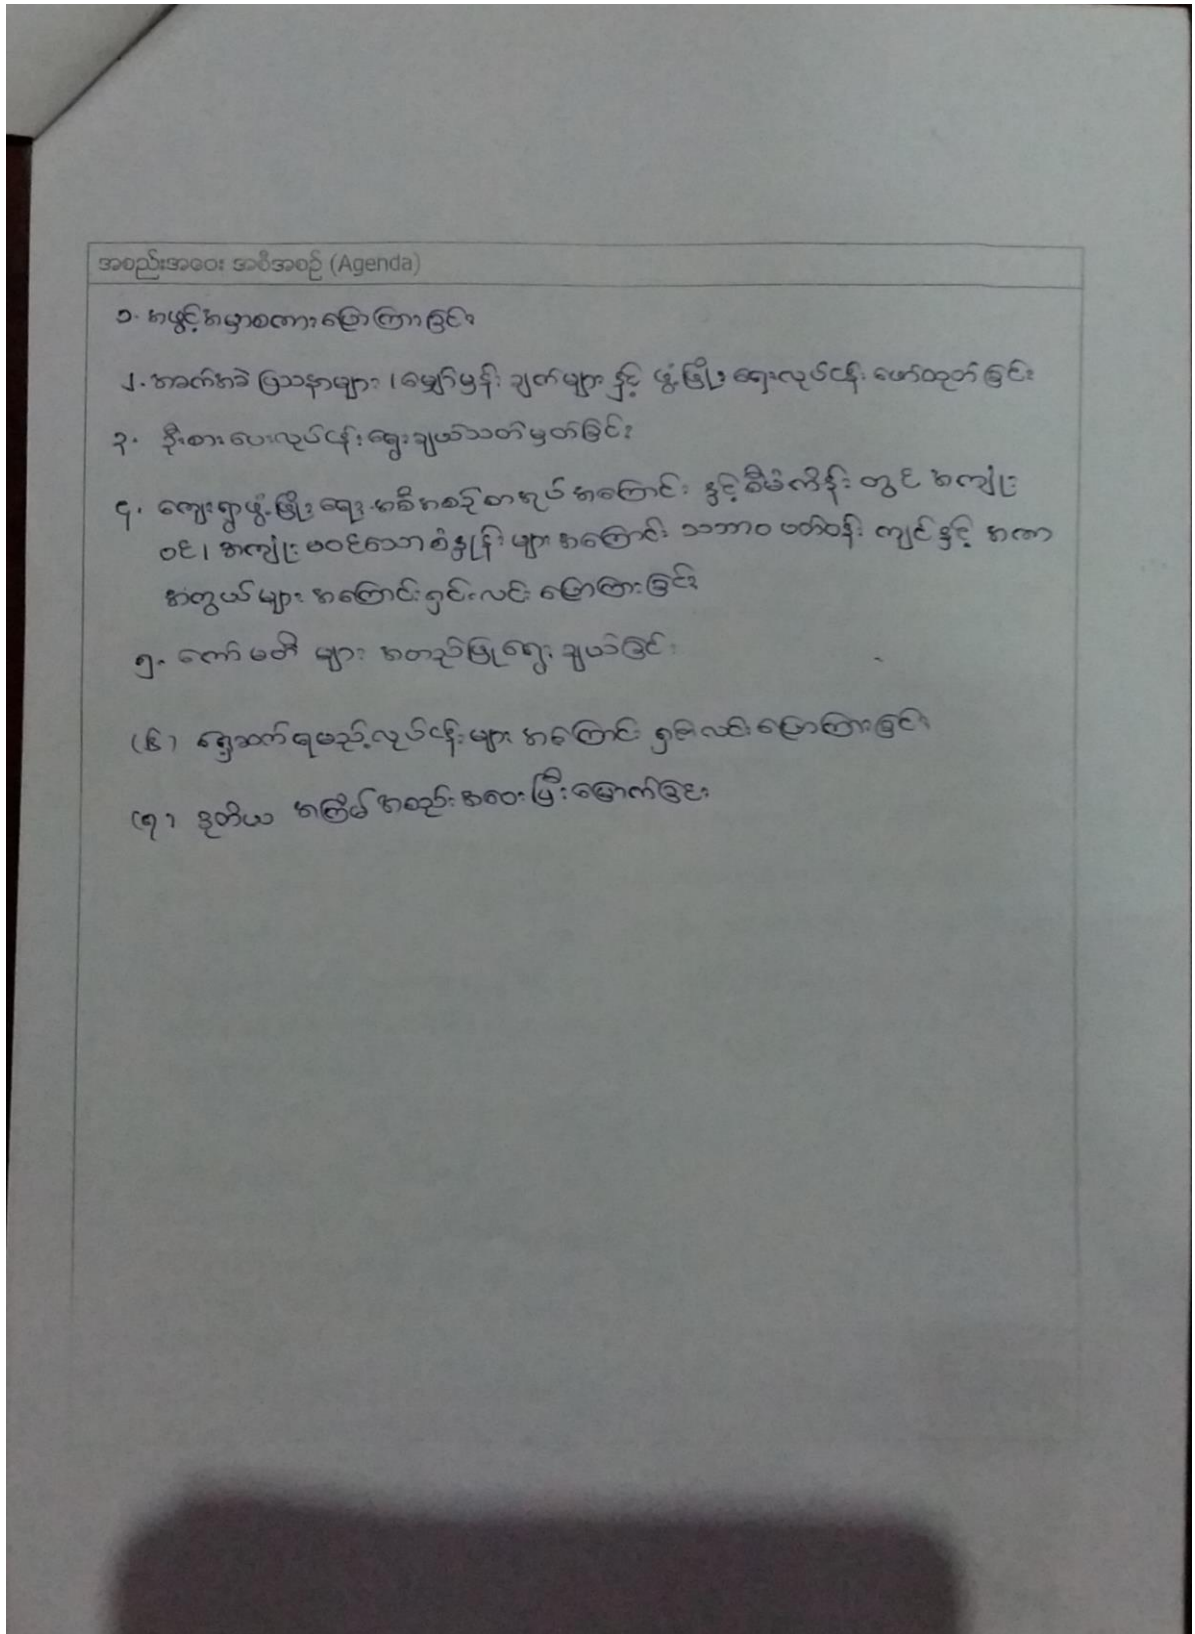 အစည်းအဝေး အစီအစဉ် (Agenda)
၁. အဖွင့်အမှာစကားပြောကြားခြင်း
၂. အခက်အခဲ ပြဿနာများ ၊ မျှော်မှန်းချက်များ နှင့် ဖွံ့ဖြိုးရေးလုပ်ငန်း ဖော်ထုတ်ခြင်း
၃. ဦးစားပေးလုပ်ငန်းရွေးချယ်သတ်မှတ်ခြင်း
၄. ကျေးရွာဖွံ့ဖြိုးရေးအစီအစဉ်စာအုပ် အကြောင်း နှင့် စီမံကိန်း တွင် အကျုံး
ဝင် ၊ အကျုံးမဝင်သောစံနှုန်းများ အကြောင်း သဘာဝ ပတ်ဝန်းကျင်နှင့် အကာ
အကွယ်များ အကြောင်းရှင်းလင်း ပြောကြားခြင်း
၅. ကော်မတီ များ အတည်ပြုရွေးချယ်ခြင်း
(၆) ရှေ့ဆက်ရမည့်လုပ်ငန်းများ အကြောင်း ရှင်းလင်းပြောကြားခြင်း
(၇) ဒုတိယ အကြိမ် အစည်းအဝေးပြီးမြောက်ခြင်း